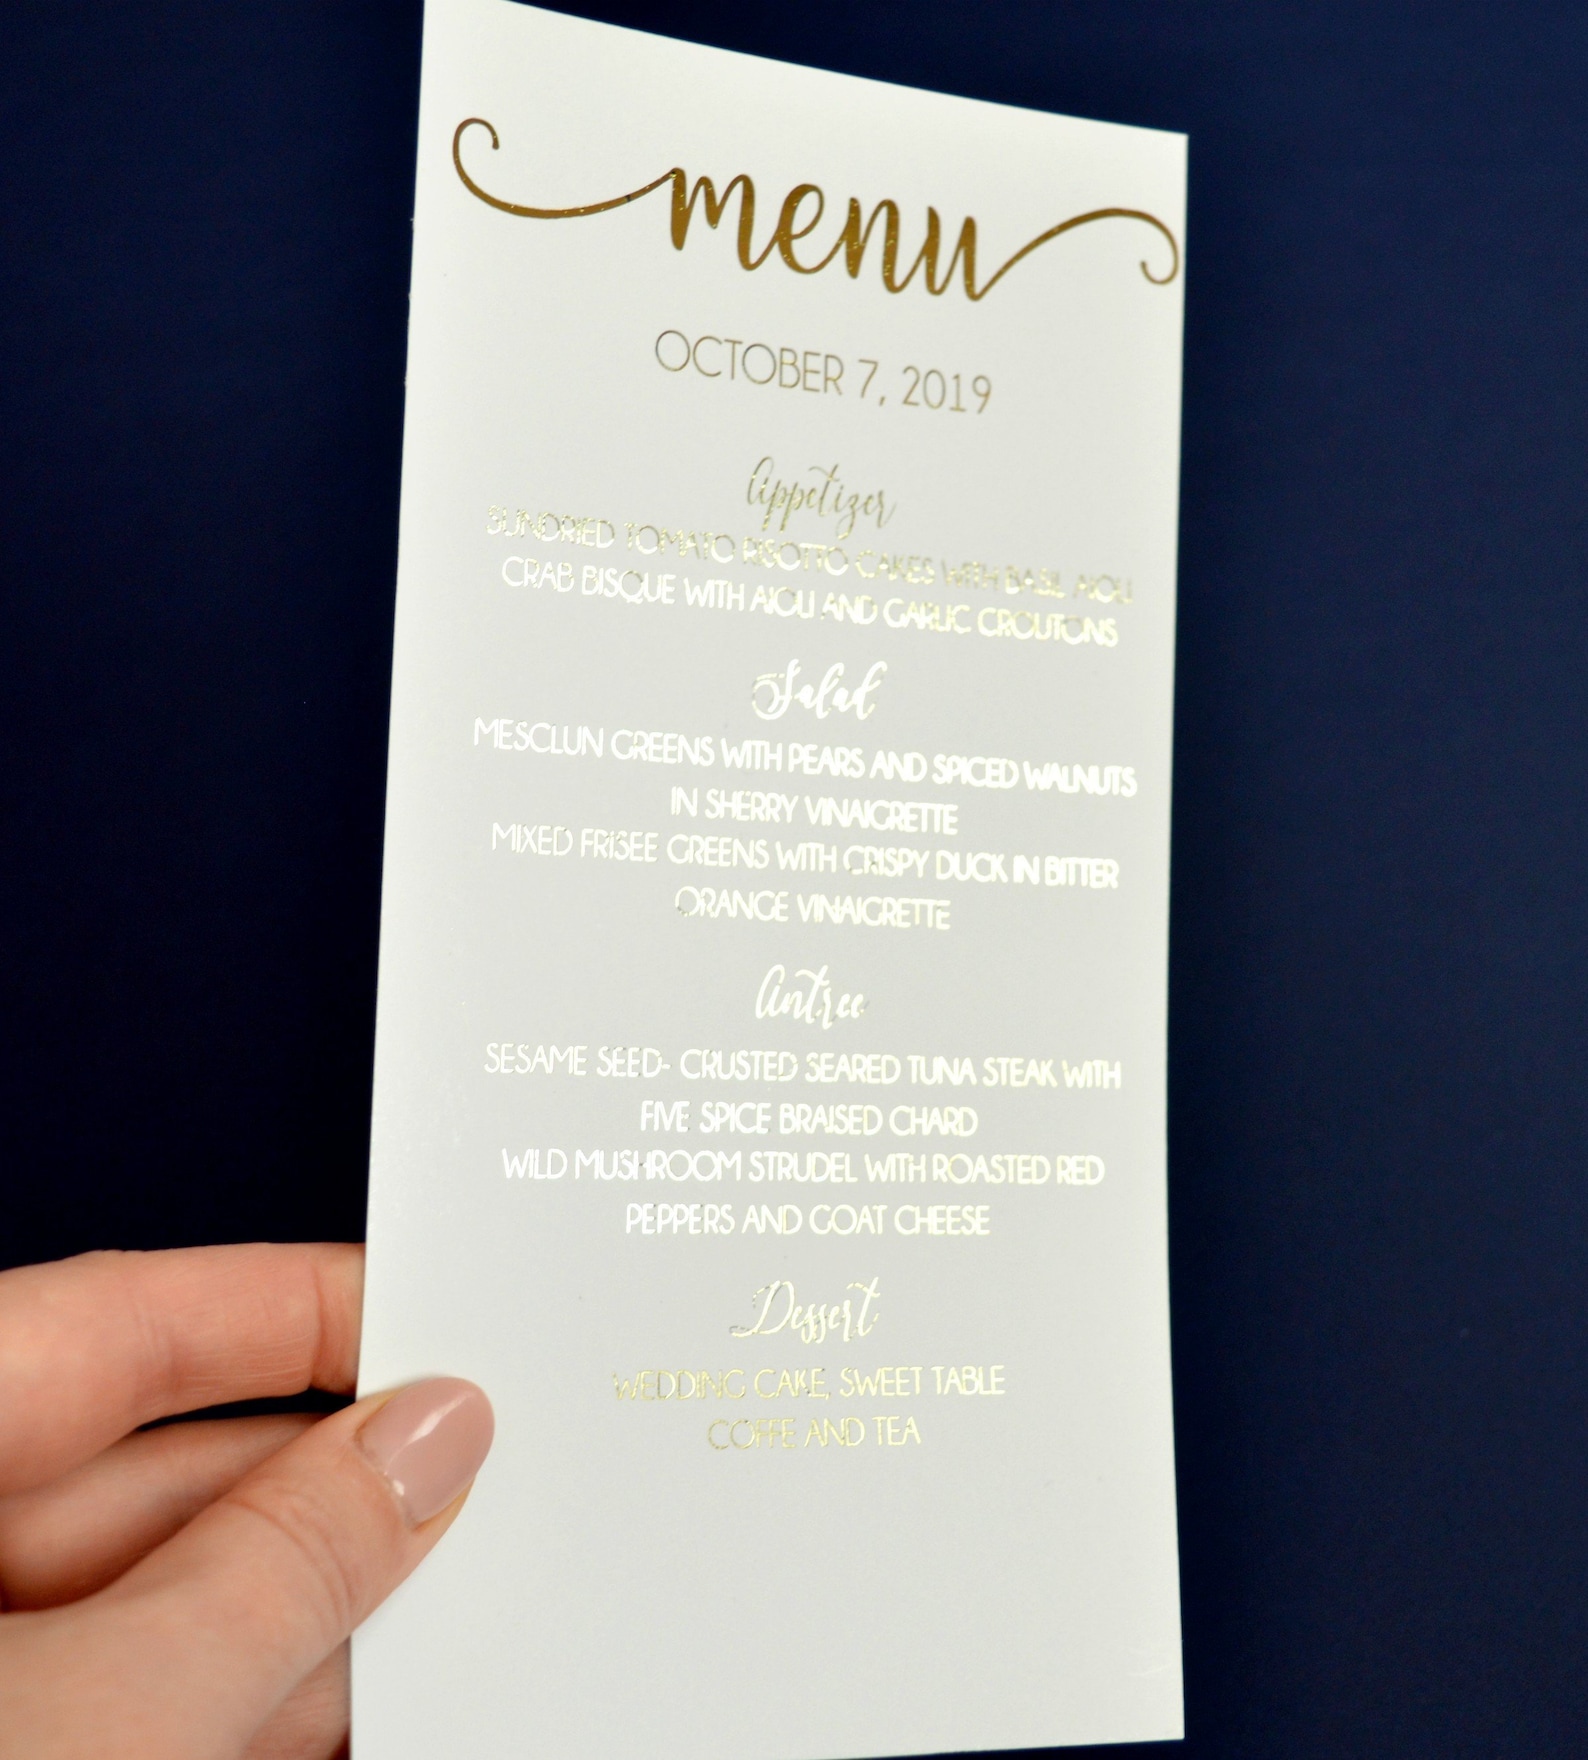 menu
OCTOBER 7, 2019
Appetizer
SUNDRIED TOMATO RISOTTO CAKES WITH BASIL AIOLI
CRAB BISQUE WITH AIOLI AND GARLIC CROUTONS
Salad
MESCLUN GREENS WITH PEARS AND SPICED WALNUTS
IN SHERRY VINAIGRETTE
MIXED FRISEE GREENS WITH CRISPY DUCK IN BITTER
ORANGE VINAIGRETTE
Antree
SESAME SEED- CRUSTED SEARED TUNA STEAK WITH
FIVE SPICE BRAISED CHARD
WILD MUSHROOM STRUDEL WITH ROASTED RED
PEPPERS AND GOAT CHEESE
Dessert
WEDDING CAKE, SWEET TABLE
COFFE AND TEA